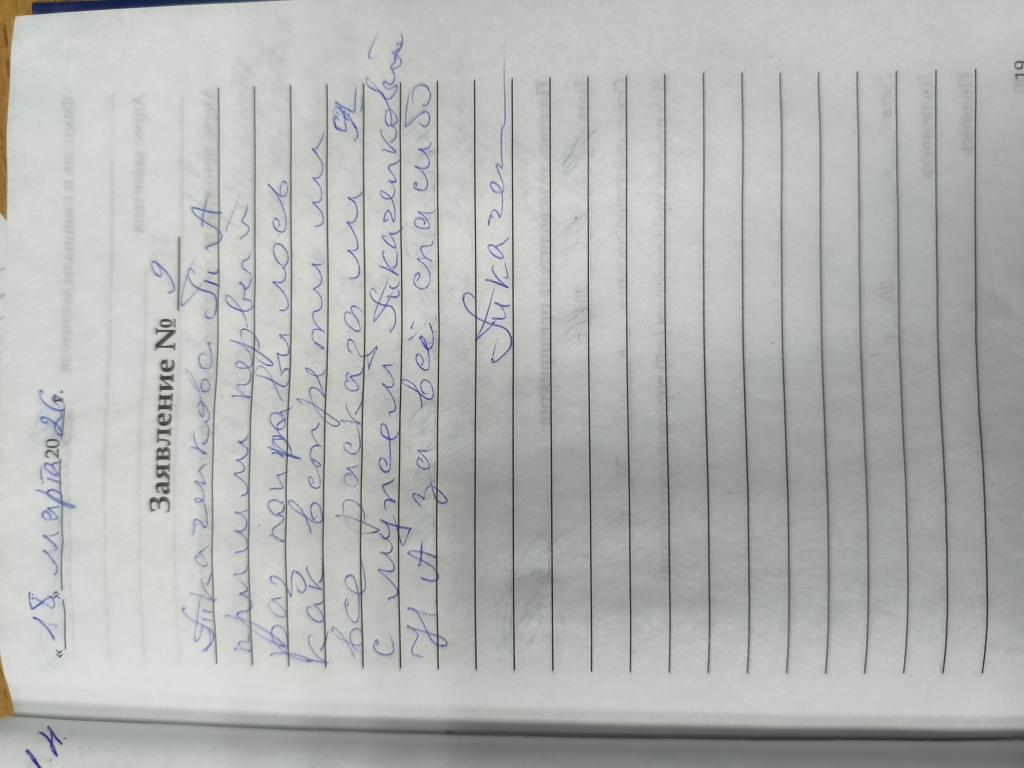 « 18 » марта 2026 г.
Заявление № 9
Ткаченкова Т А
пришли первый
раз понравилось
как встретили
все расказали Я
с мужем Ткаченковый
Н А за всё спасибо
Ткачен
19